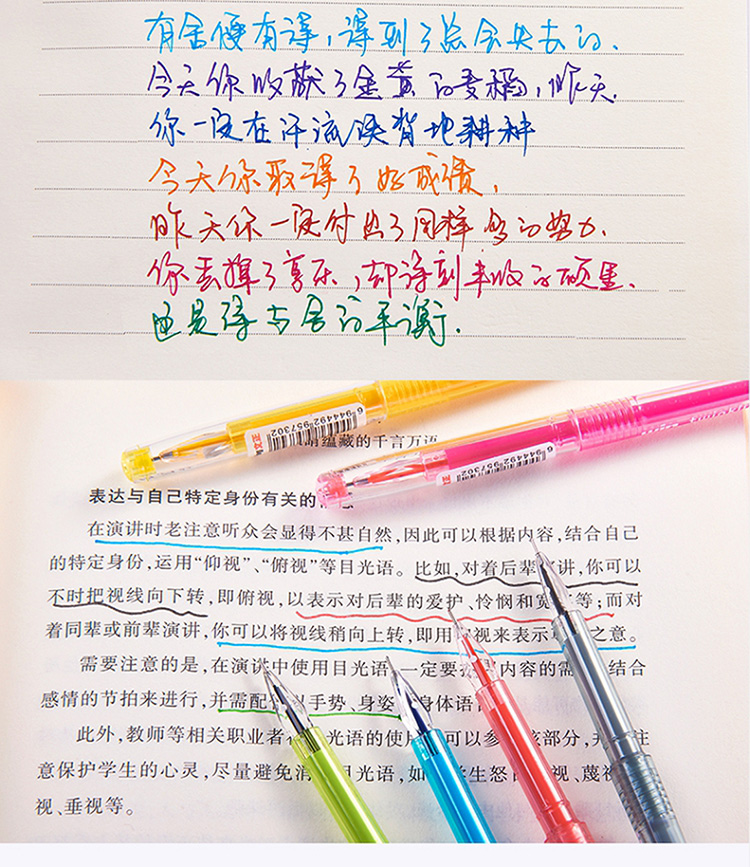 有舍便有得，得到了总会失去的.
今天你收获了金黄的麦穗，昨天.
你一定在汗流浃背地耕种
今天你取得了好成绩，
昨天你一定付出了同样多的努力.
你丢掉了享乐，却得到丰收的硕果.
这是得与舍的平衡.
6944492957302
6944492957302
蕴藏的千言万语
表达与自己特定身份有关的
在演讲时老注意听众会显得不甚自然，因此可以根据内容，结合自己
的特定身份，运用“仰视”、“俯视”等目光语。比如，对着后辈 讲，你可以
不时把视线向下转，即俯视，以表示对后辈的爱护、怜悯和宽 等；而对
着同辈或前辈演讲，你可以将视线稍向上转，即用 视来表示 之意。
需要注意的是，在演讲中使用目光语 一定要 内容的需 结合
感情的节拍来进行，并需配 手势、身姿 身体语
此外，教师等相关职业者 光语的使 可以参 该部分， 注
意保护学生的心灵，尽量避免 目光语，如 学生怒 视、蔑
视、垂视等。